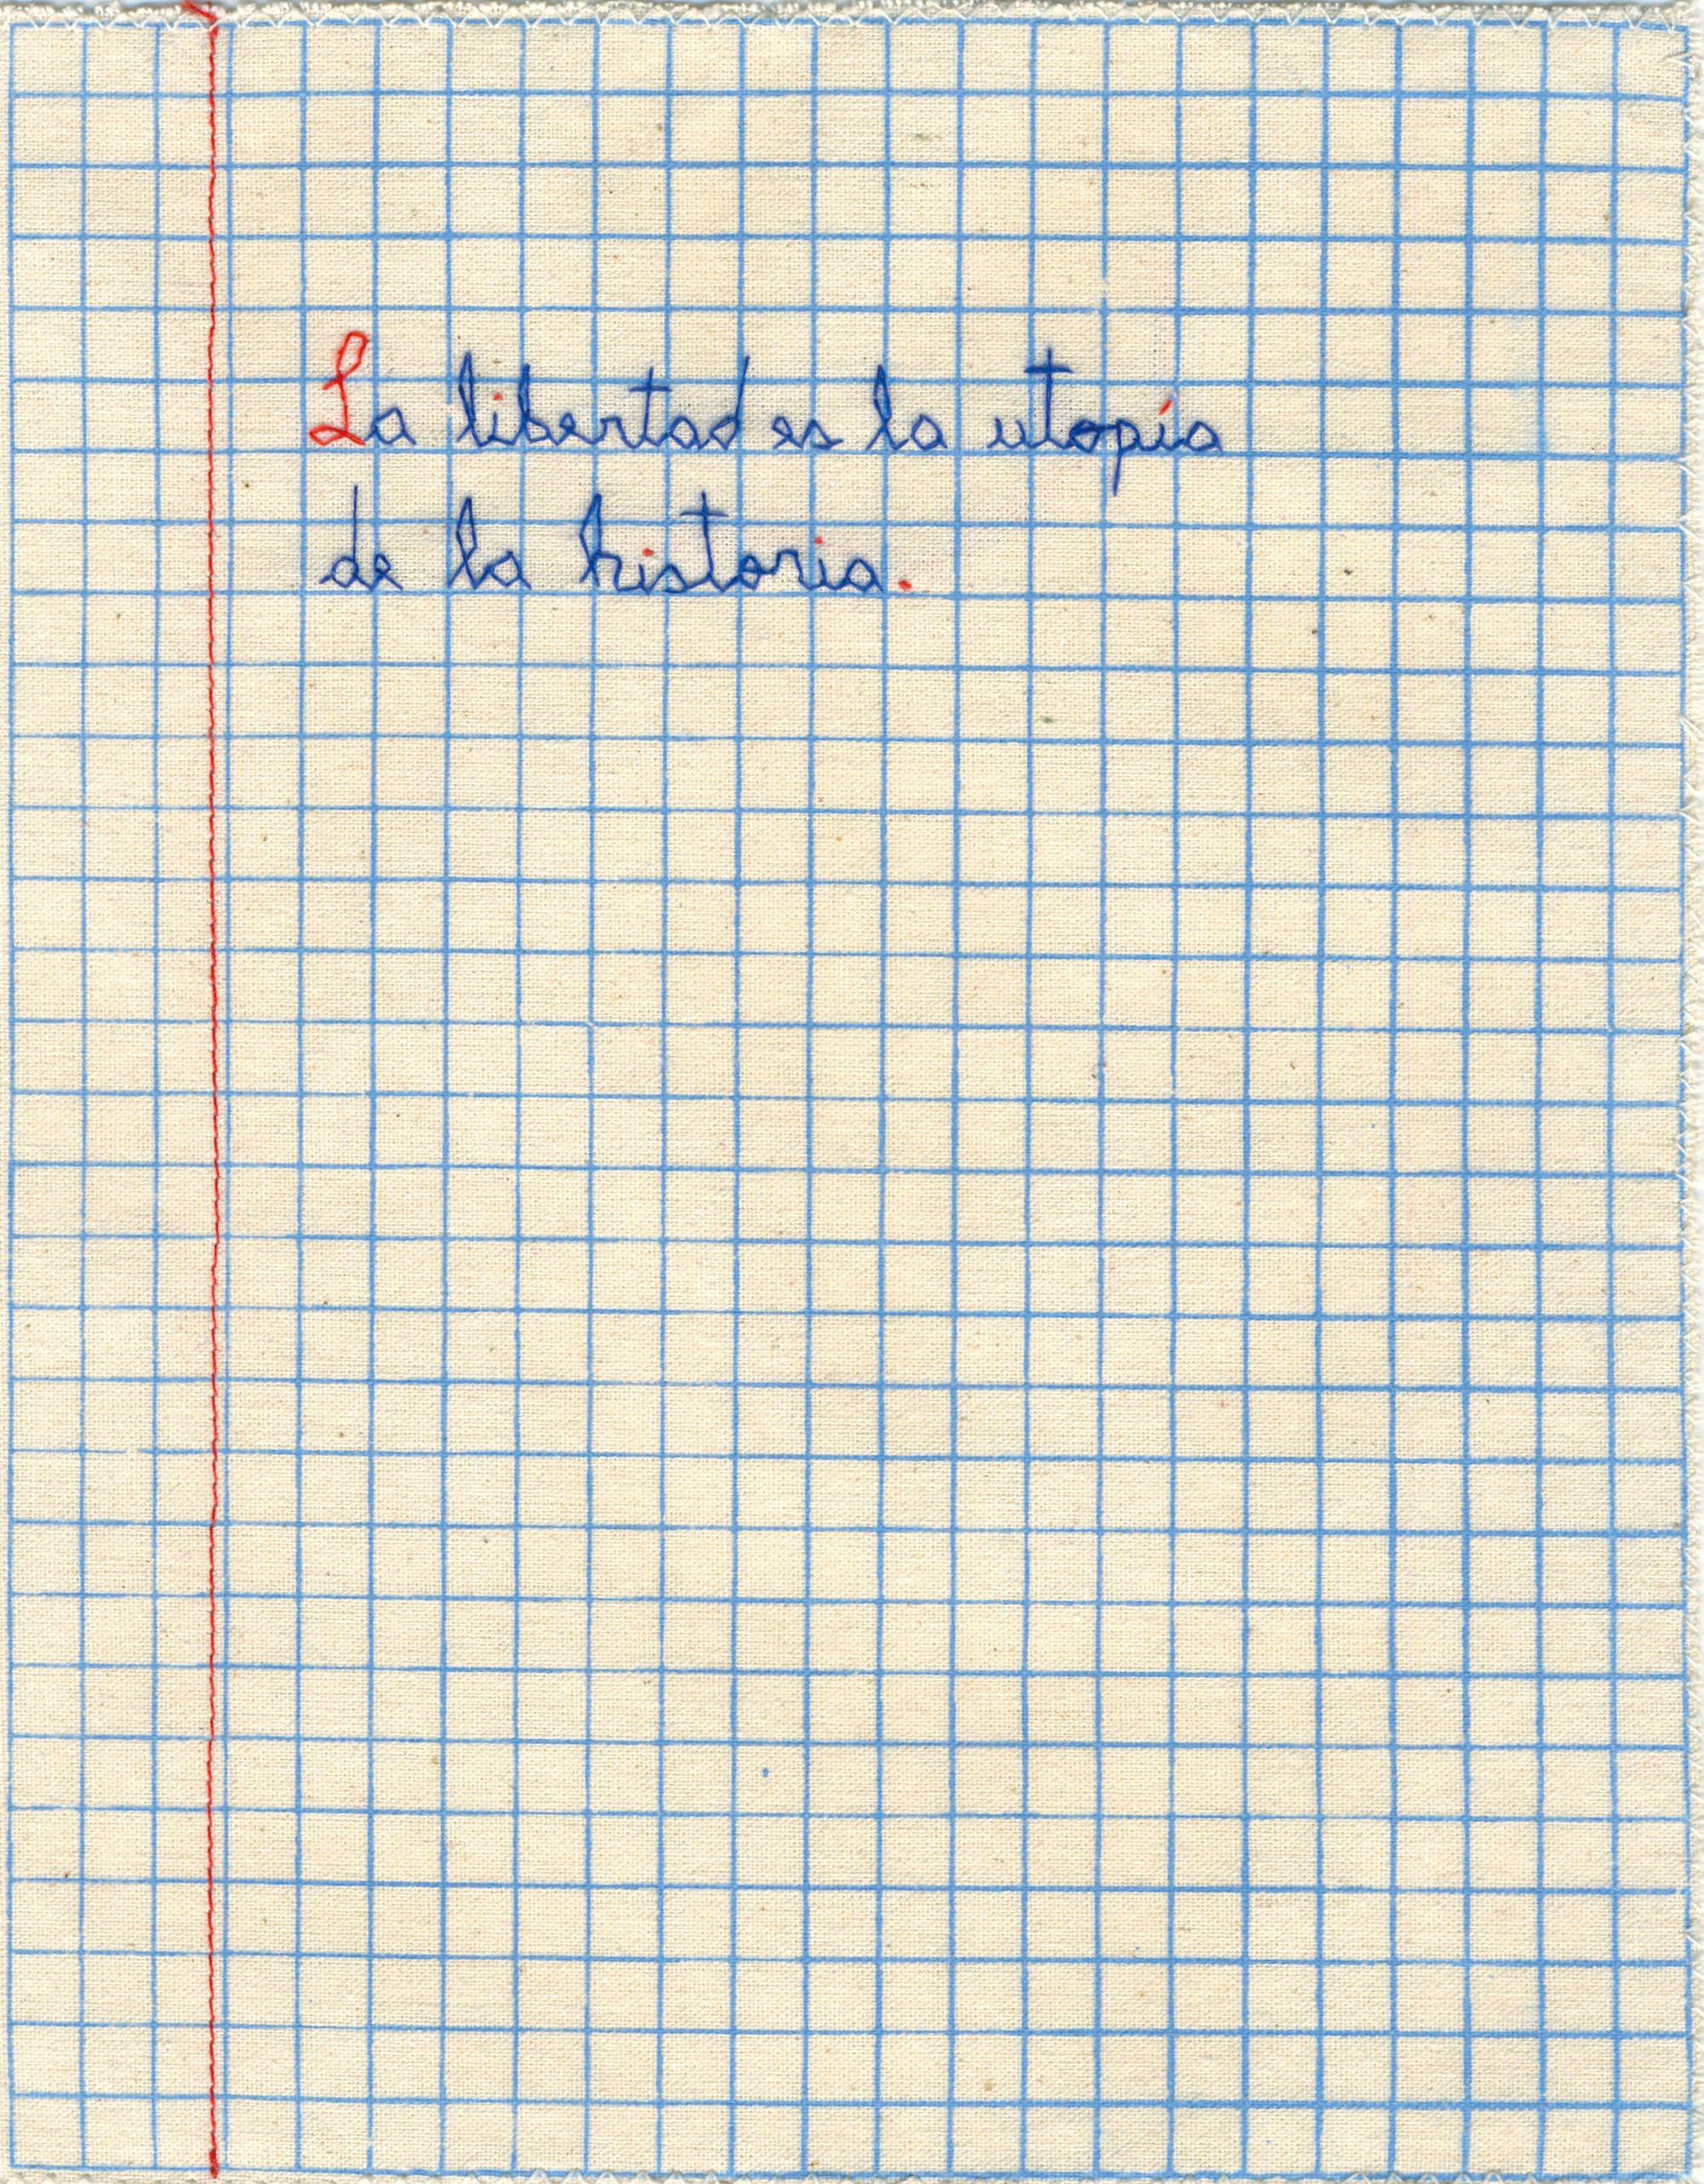 La libertad es la utopía
de la historia.